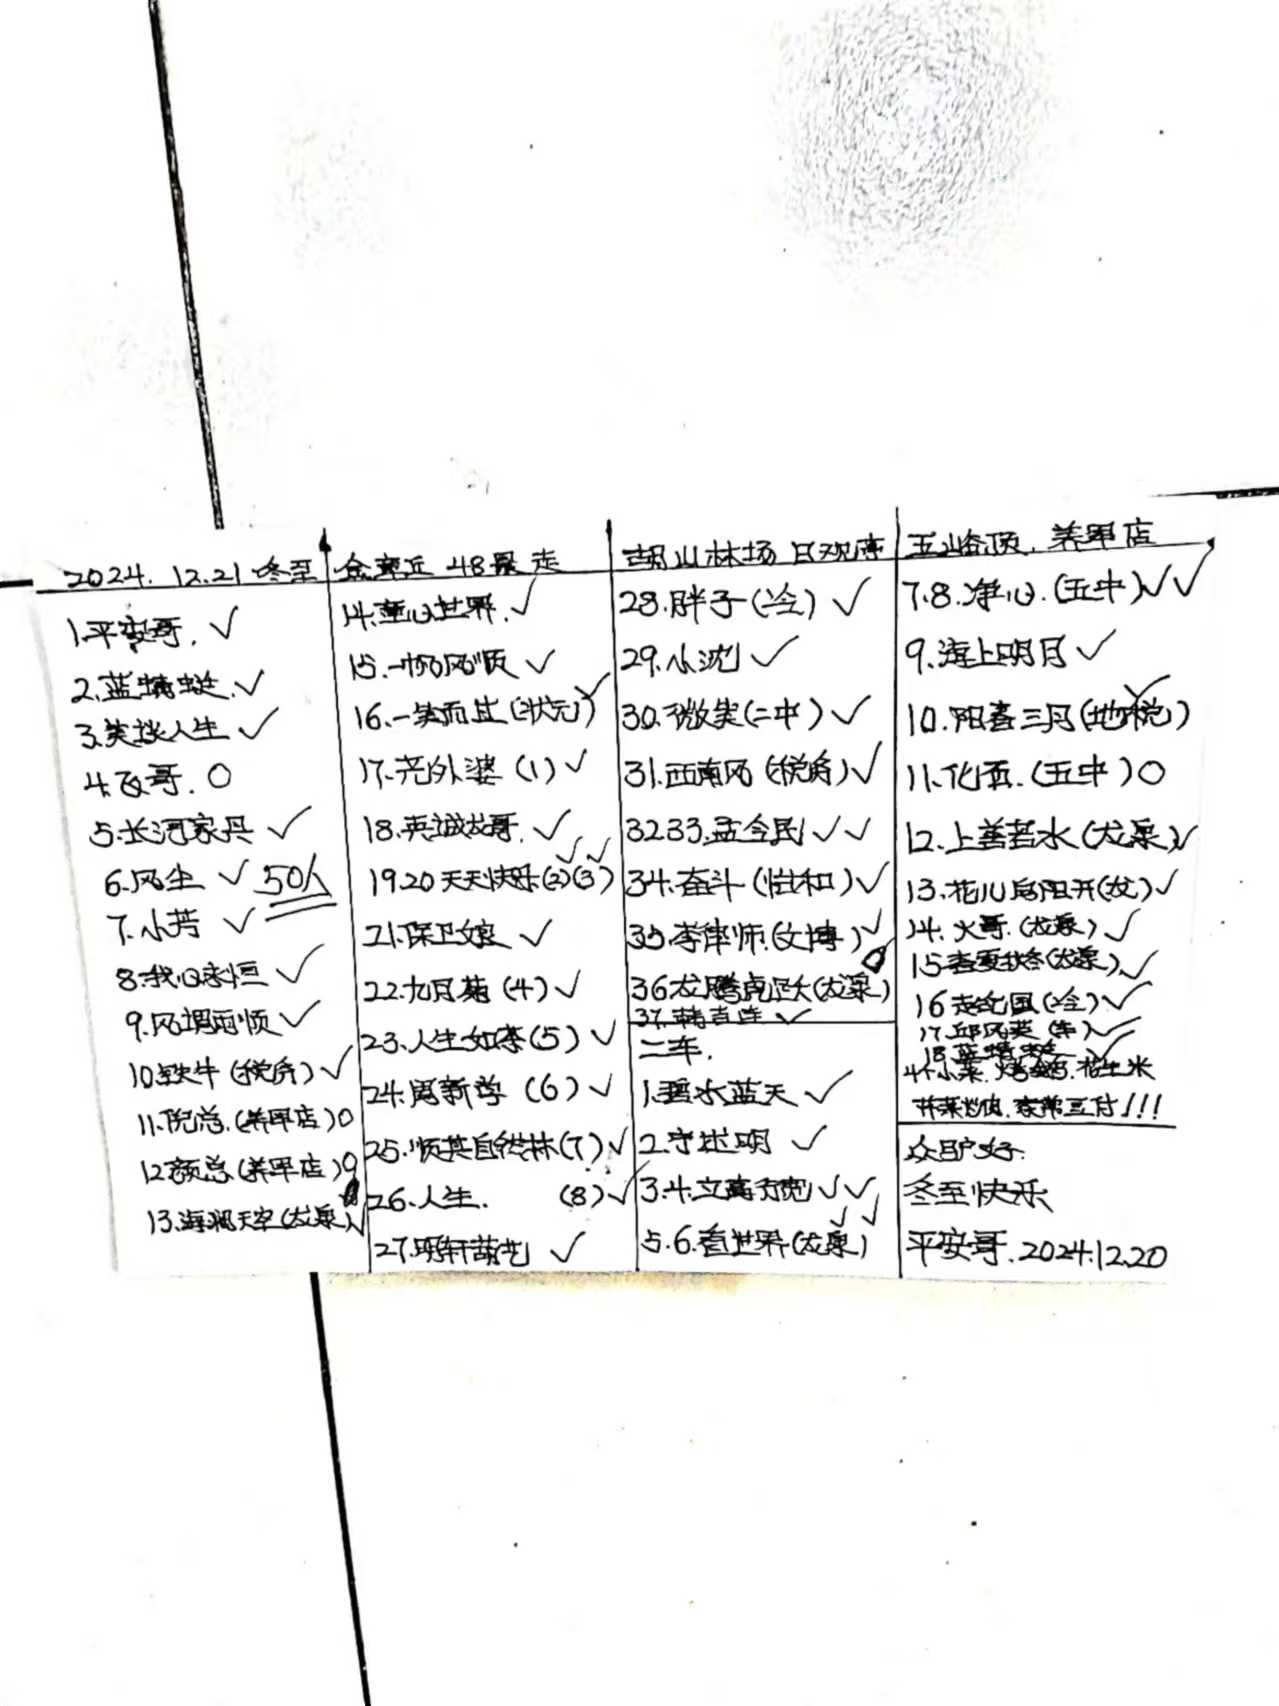 2024.12.21 冬至 金寨近 48景走 胡山林场 日观库 五峰顶、养军店
1.平安哥. ✓
2.蓝蜻蜓. ✓
3.笑谈人生 ✓
4.飞哥. ○
5.长河家兵 ✓
6.风尘 ✓ 50人
7.小芳 ✓
8.我心永恒 ✓
9.风调雨顺 ✓
10.铁牛(税务) ✓
11.倪总.(养军店) ○
12.颜总(养军店) ○
13.海阔天空(龙泉) ✓
14.童心世界. ✓
15.一帆风顺 ✓
16.一笑而过(状元) ✓
17.老外婆 (1) ✓
18.英诚龙哥. ✓
19.20 天天快乐(2)(3) ✓✓
21.保卫娘 ✓
22.九月菊 (4) ✓
23.人生如李(5) ✓
24.周新学 (6) ✓
25.顺其自然林(7) ✓
26.人生. (8) ✓
27.明轩葫芦 ✓
28.胖子(冷) ✓
29.小沈 ✓
30.微笑(二中) ✓
31.西南风(税务) ✓
32 33.孟令民 ✓✓
34.奋斗(怡和) ✓
35.李律师.(文博) ✓
36龙腾虎跃(龙泉)
37.韩吉连 ✓
二车.
1.碧水蓝天 ✓
2.李过明 ✓
3.4.立高方宽 ✓✓
5.6.看世界(龙泉) ✓✓
7.8.净心.(五中) ✓✓
9.海上明月 ✓
10.阳春三月(地税) ✓
11.化雨.(五中) ○
12.上善若水(龙泉) ✓
13.花儿向阳开(龙) ✓
14.火哥.(龙泉) ✓
15春夏秋冬(龙泉) ✓
16 赵纪国(冷) ✓
17.邱风英(牛) ✓
18.蓝蜻蜓 ✓
4个小菜. 花生米
众驴好.
冬至快乐
平安哥.2024.12.20